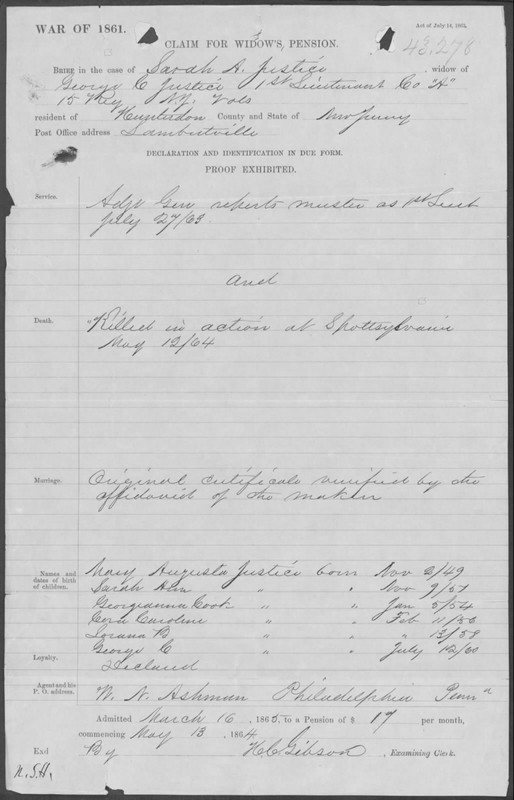 WAR OF 1861.
Act of July 14, 1862.
CLAIM FOR WIDOW'S, PENSION.
43,278
BRIEF in the case of Sarah A. Justice, widow of
George C Justice 1st Lieutenant Co "A"
15 Reg N.J. Vols
resident of Hunterdon County and State of New Jersey
Post Office address Lambertville
DECLARATION AND IDENTIFICATION IN DUE FORM.
PROOF EXHIBITED.
Service.
Adjt Gen reports muster as 1st Lieut
July 27/63
And
Death.
"Killed in action at Spottsylvania
May 12/64
Marriage.
Original certificate verified by the
affidavid of the maker
Names and dates of birth of children.
Mary Augusta Justice born Nov 2/49
Sarah Ann " " Nov 9/51
Georgianna Cook " " Jan 5/54
Cora Caroline " " Feb 11/56
B " " " 13/58
George C " " July 12/60
Loyalty.
Declared
Agent and his P. O. address.
W. N. Ashman Philadelphia Penn a
Admitted March 16, 1865, to a Pension of $ 17 per month,
commencing May 13, 1864
Exd By H C Gibson, Examining Clerk.
N.S.H.